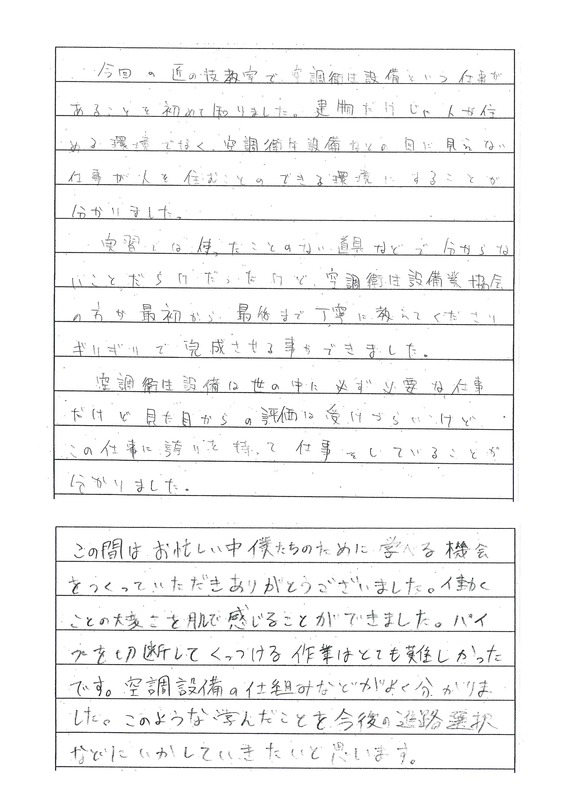 今回の匠の技教室で空調衛生設備という仕事が
あることを初めて知りました。建物だけじゃ人が住
める環境でなく、空調衛生設備などの目に見えない
仕事が人を住むことのできる環境にすることが
分かりました。
実習では使ったことのない道具などで分からな
いことだらけだったけど、空調衛生設備業協会
の方が最初から最後まで丁寧に教えてくださり
ギリギリで完成させる事ができました。
空調衛生設備は世の中に必ず必要な仕事
だけど見た目からの評価は受けづらいけど
この仕事に誇りを持って仕事をしていることが
分かりました。
この間はお忙しい中僕たちのために学べる機会
をつくっていただきありがとうございました。働く
ことの大変さを肌で感じることができました。パイ
プを切断してくっつける作業はとても難しかった
です。空調設備の仕組みなどがよく分かりま
した。このような学んだことを今後の進路選択
などにいかしていきたいと思います。